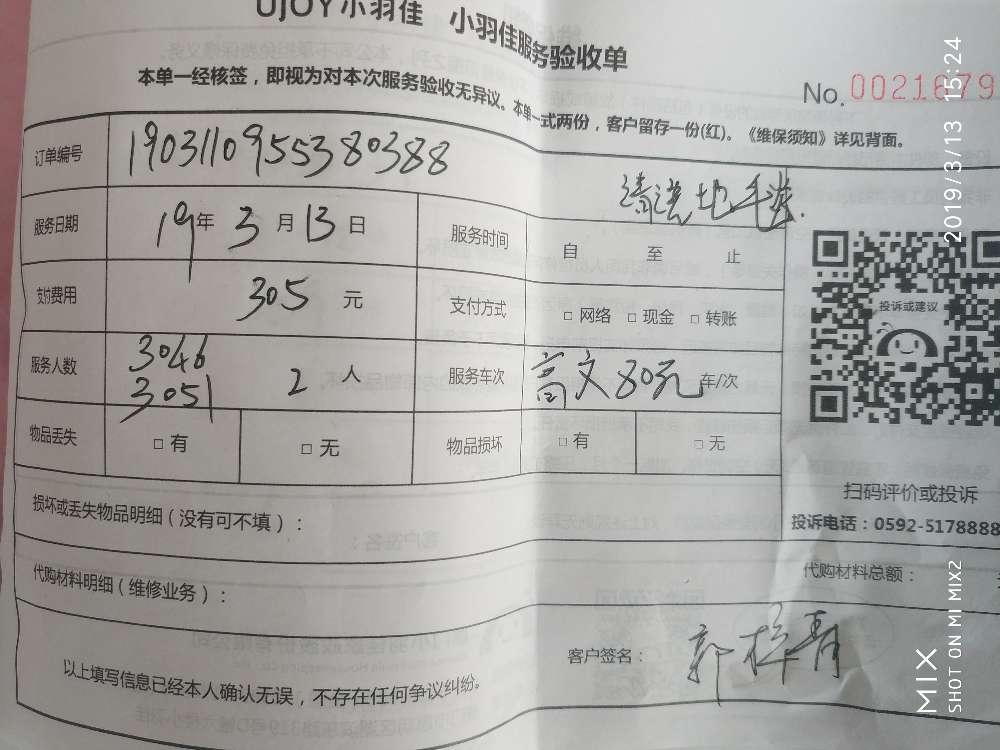 UJOY小羽佳 小羽佳服务验收单
本单一经核签，即视为对本次服务验收无异议。本单一式两份，客户留存一份(红)。《维保须知》详见背面。
No. 0021679
订单编号 1903110955380388
清洗地毛毯.
服务日期 19年 3月 13日 服务时间 自 至 止
支付费用 305 元 支付方式 □ 网络 □ 现金 □ 转账
服务人数 3046 3051 2 人 服务车次 高文80元 车/次
物品丢失 □ 有 □ 无 物品损坏 □ 有 □ 无
投诉或建议
扫码评价或投诉
投诉电话：0592-5178888
损坏或丢失物品明细（没有可不填）：
代购材料明细（维修业务）：
代购材料总额：
以上填写信息已经本人确认无误，不存在任何争议纠纷。
客户签名：郭梓青
2019/3/13 15:24
MIX
SHOT ON MI MIX2